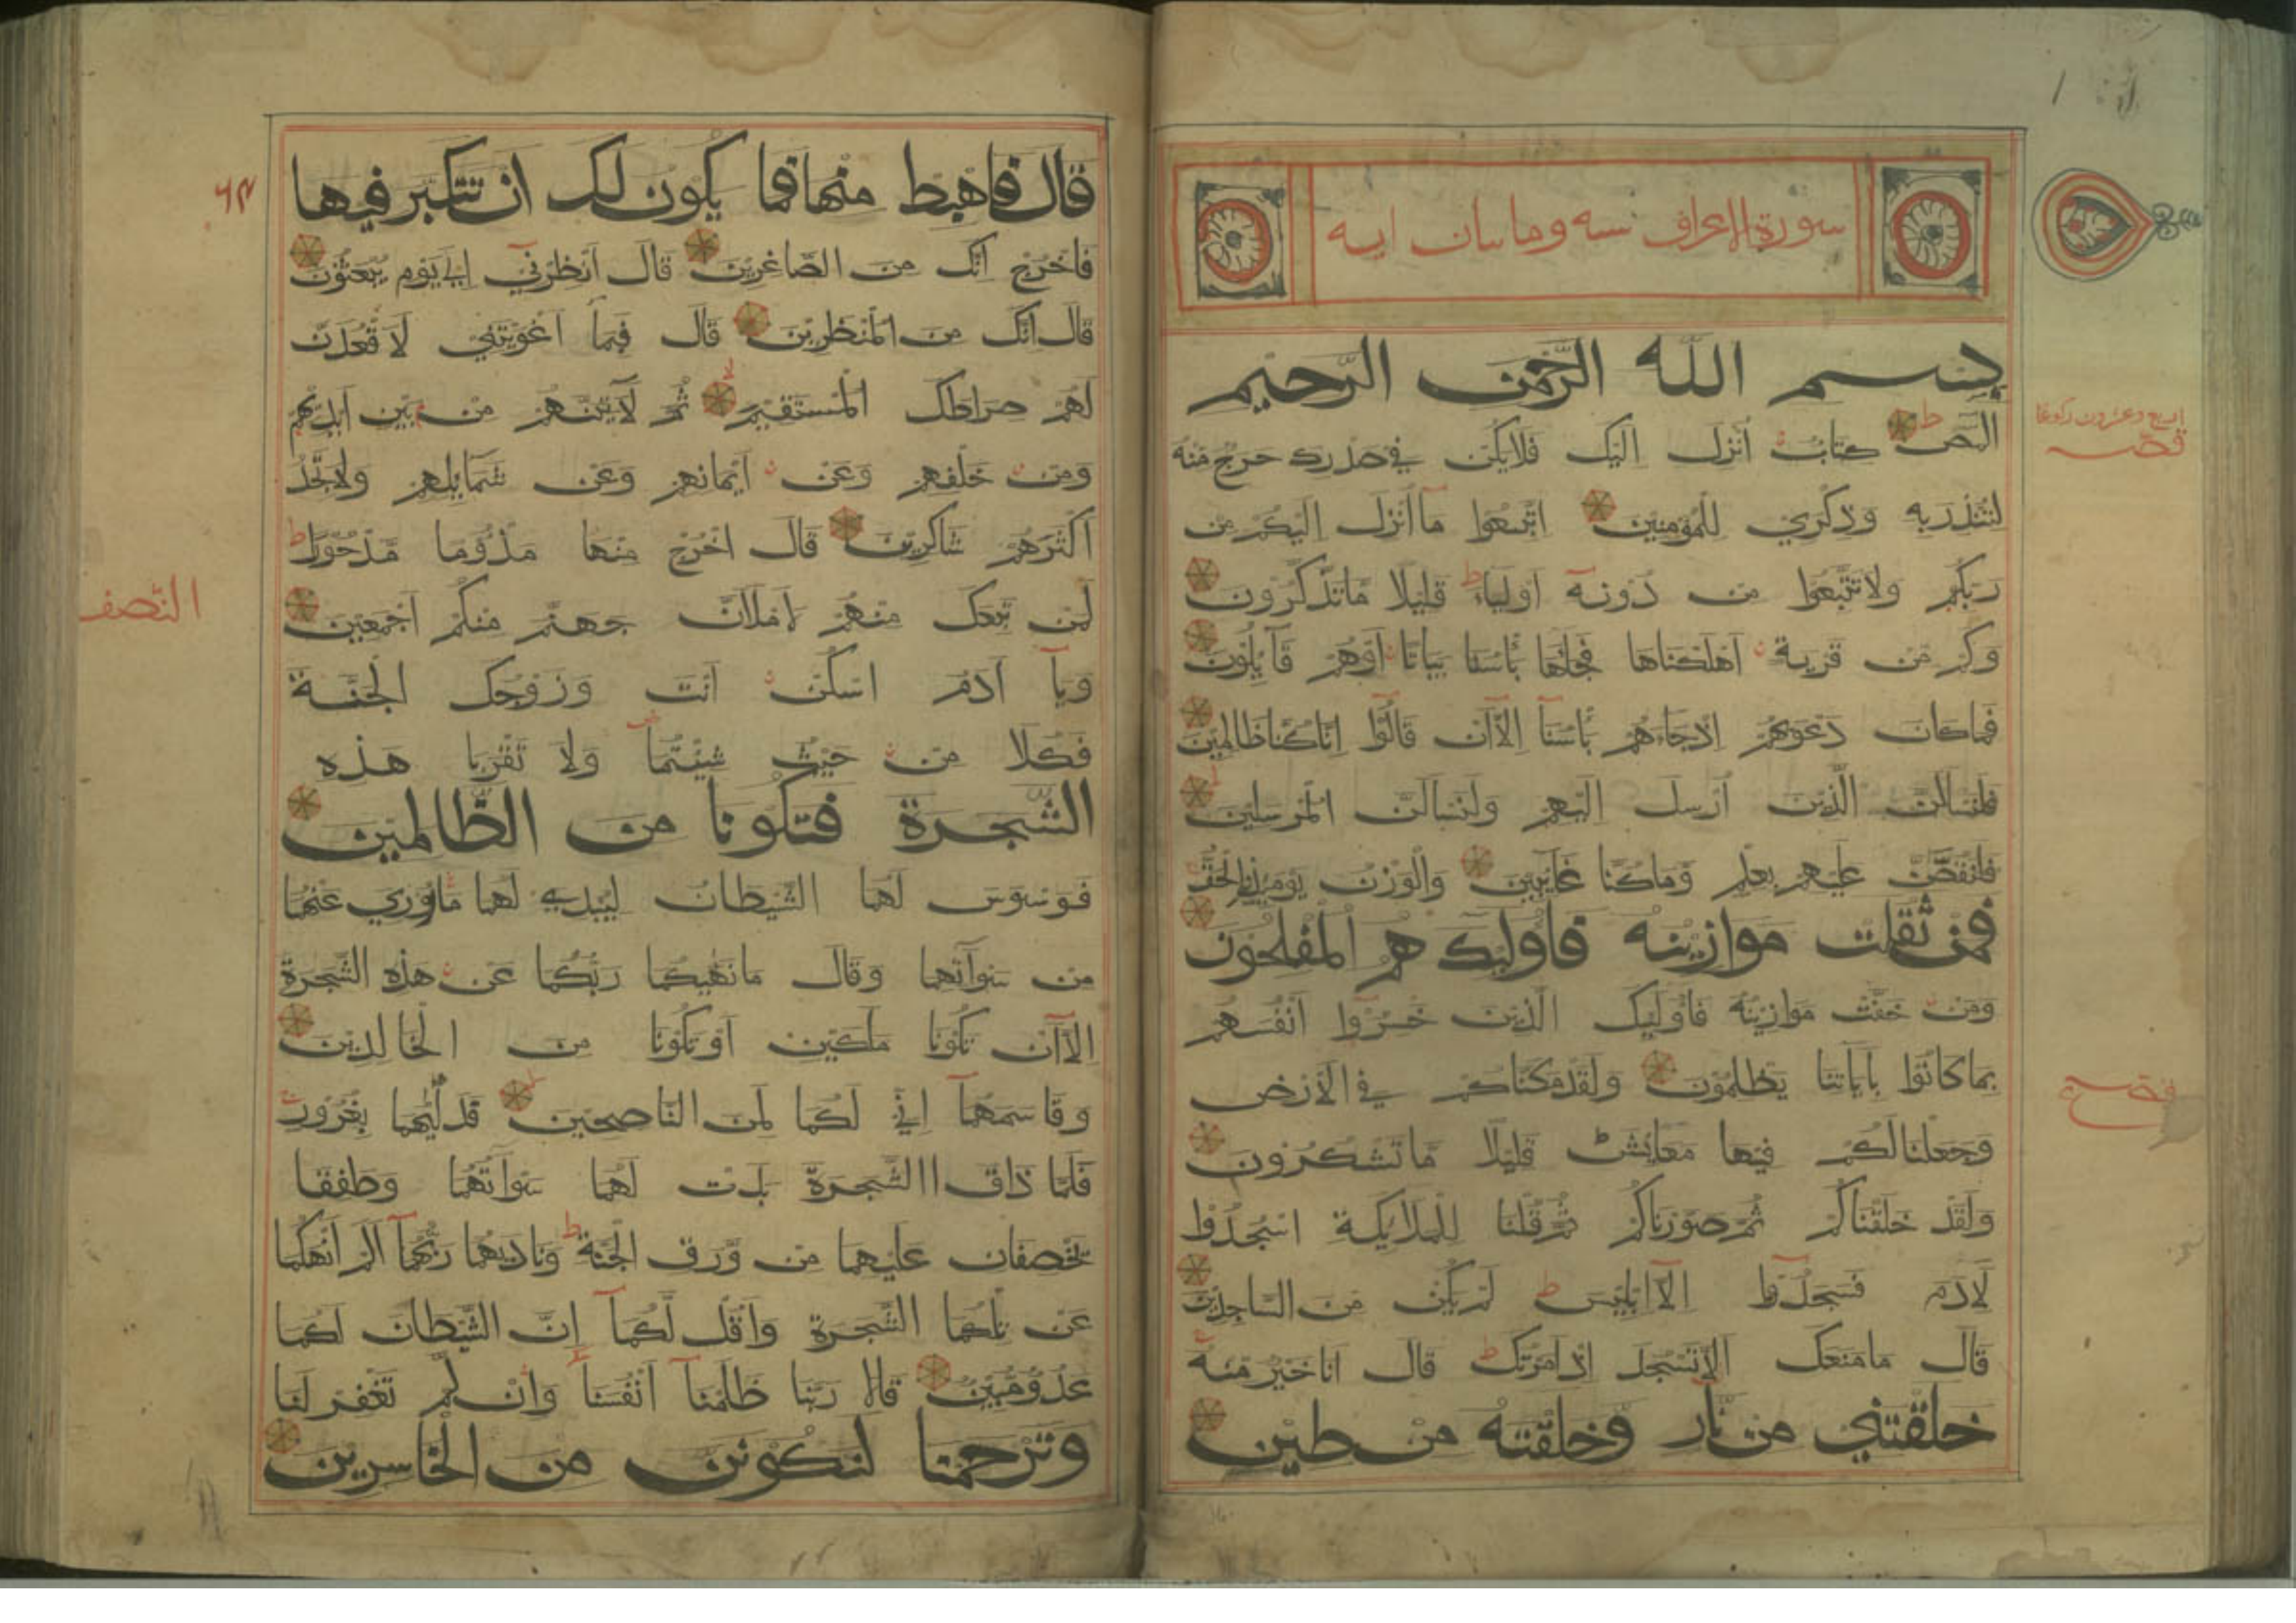 سورة الاعراف ستة ومايتان اية
بسم الله الرحمن الرحيم
المص كتاب انزل اليك فلا يكن في صدرك حرج منه
لتنذر به وذكري للمؤمنين اتبعوا ما انزل اليكم من
ربكم ولا تتبعوا من دونه اولياء قليلا ما تذكرون
وكم من قرية اهلكناها فجاءها بأسنا بياتا اوهم قايلون
فما كان دعويهم اذ جاءهم بأسنا الا ان قالوا انا كنا ظالمين
فلنسالن الذين ارسل اليهم ولنسالن المرسلين
فلنقصن عليهم بعلم وما كنا غايبين والوزن يوميذ الحق
فمن ثقلت موازينه فاوليك هم المفلحون
ومن خفت موازينه فاوليك الذين خسروا انفسهم
بما كانوا باياتنا يظلمون ولقد مكناكم في الارض
وجعلنا لكم فيها معايش قليلا ما تشكرون
ولقد خلقناكم ثم صورناكم ثم قلنا للملايكة اسجدوا
لادم فسجدوا الا ابليس لم يكن من الساجدين
قال ما منعك الا تسجد اذ امرتك قال انا خير منه
خلقتني من نار وخلقته من طين
اربع وعشرون ركوعا
قال فاهبط منها فما يكون لك ان تتكبر فيها
فاخرج انك من الصاغرين قال انظرني الي يوم يبعثون
قال انك من المنظرين قال فبما اغويتني لاقعدن
لهم صراطك المستقيم ثم لآتينهم من بين ايديهم
ومن خلفهم وعن ايمانهم وعن شمايلهم ولا تجد
اكثرهم شاكرين قال اخرج منها مذؤما مدحورا
لمن تبعك منهم لاملان جهنم منكم اجمعين
ويآ آدم اسكن انت وزوجك الجنة
فكلا من حيث شيتما ولا تقربا هذه
الشجرة فتكونا من الظالمين
فوسوس لهما الشيطان ليبدي لهما ما ووري عنهما
من سوآتهما وقال ما نهيكما ربكما عن هذه الشجرة
الا ان تكونا ملكين او تكونا من الخالدين
وقاسمهما اني لكما لمن الناصحين فدليهما بغرور
فلما ذاقا الشجرة بدت لهما سوآتهما وطفقا
يخصفان عليهما من ورق الجنة وناديهما ربهما الم انهكما
عن تلكما الشجرة واقل لكما ان الشيطان لكما
عدو مبين قالا ربنا ظلمنا انفسنا وان لم تغفر لنا
وترحمنا لنكونن من الخاسرين
النصف